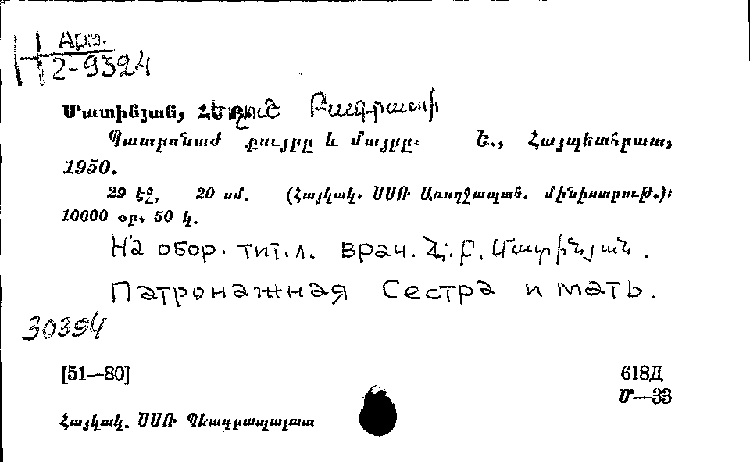 Арм.
2-9324
Մատինյան, Հեղուշ Բագրատի
Պատրոնաժ քույրը և մայրը։ Ե., Հայպետհրատ,
1950.
29 էջ, 20 սմ. (Հայկակ. ՍՍՌ Առողջապահ. մինիստրութ.)։
10000 օր. 50 կ.
На обор. тит.л. врач. Հ. Բ. Մատինյան.
Патронажная Сестра и мать.
30394
[51—80]
618Д
Մ—33
Հայկակ. ՍՍՌ Գեագրապալատ